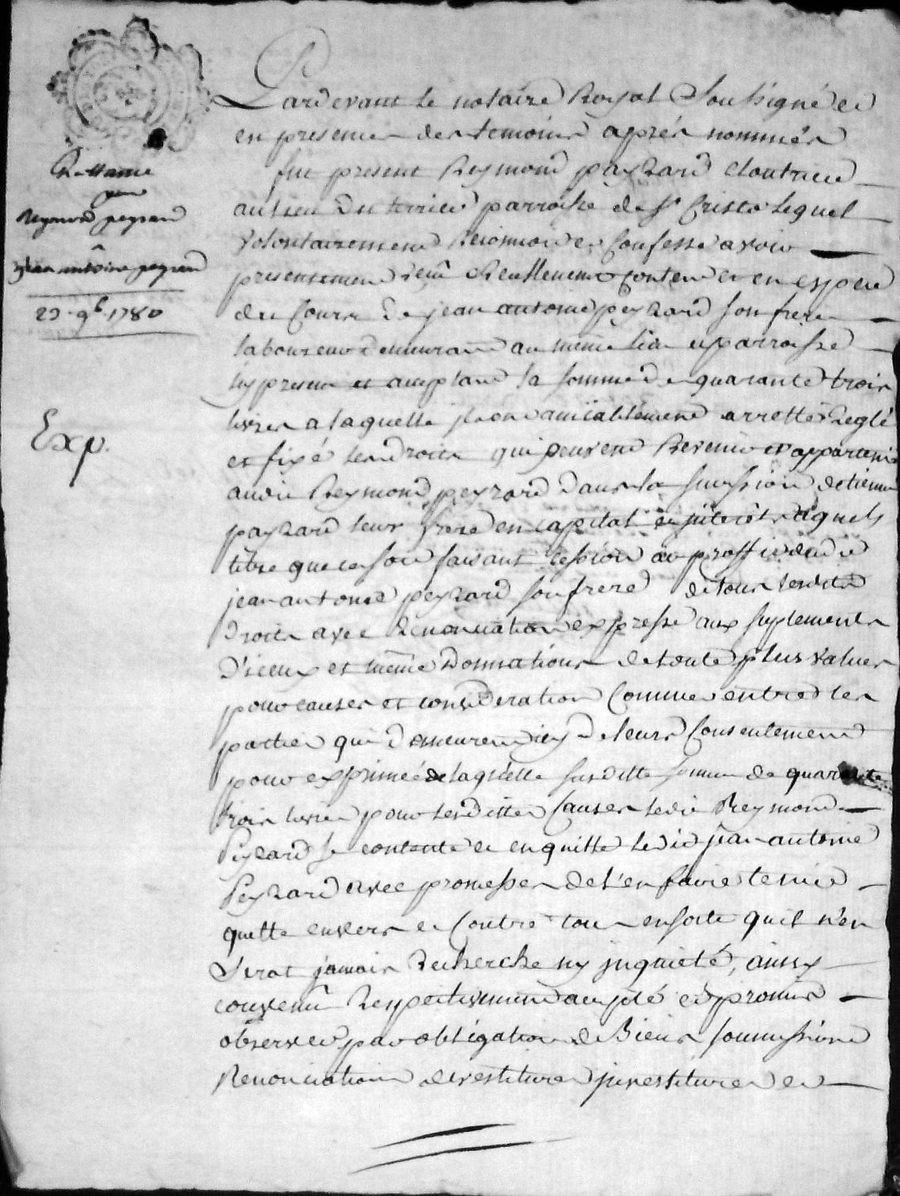 Pardevant le notaire Royal Soussigné et
en presence des temoins aprés nommés
fut present Reymond peyrard cloutrier
au lieu du terrier parroisse de St Cristo lequel
volontairement Reconnoit et Confesse avoir
presentement reçu Reellement contant et en espece
du Cours de jean antoine peyrard son frere
laboureur demeurant au même lieu et parroisse
icy present et aceptant la somme de quarante trois
livres a laquelle ils ont amicablement arretté Reglé
et fixé les droits qui peuvent Revenir et appartenir
audit Reymond peyrard dans la sucession detienne
peyrard leur frere en capital et interets a quels
titre que ce soit faisant cession au proffit dudit
jean antoine peyrard son frere de tous lesdits
droits avec Renonciation expresse aux suplements
d'iceux et même donnations de toute plus values
pour causes et consideration Connues entre les
parties qui demeurent icy de leurs Consentement
pour exprimée de laquelle susditte somme de quarante
trois livres pour lesdittes Causes ledit Reymond
Peyrard se contente et en quitte ledit jean antoine
Peyrard avec promesses de l'en faire tenir
quitte envers et Contre tous en sorte quil n'en
serat jamais Recherché ny inquieté, ainsy
convenu Respectivement acepté et promis
observer par obligation de Biens soumissions
Renonciations devestitures investitures et
Quittance
pour
Reymond peyrard
a jean antoine peyrard
23 9b. 1780
Exp.